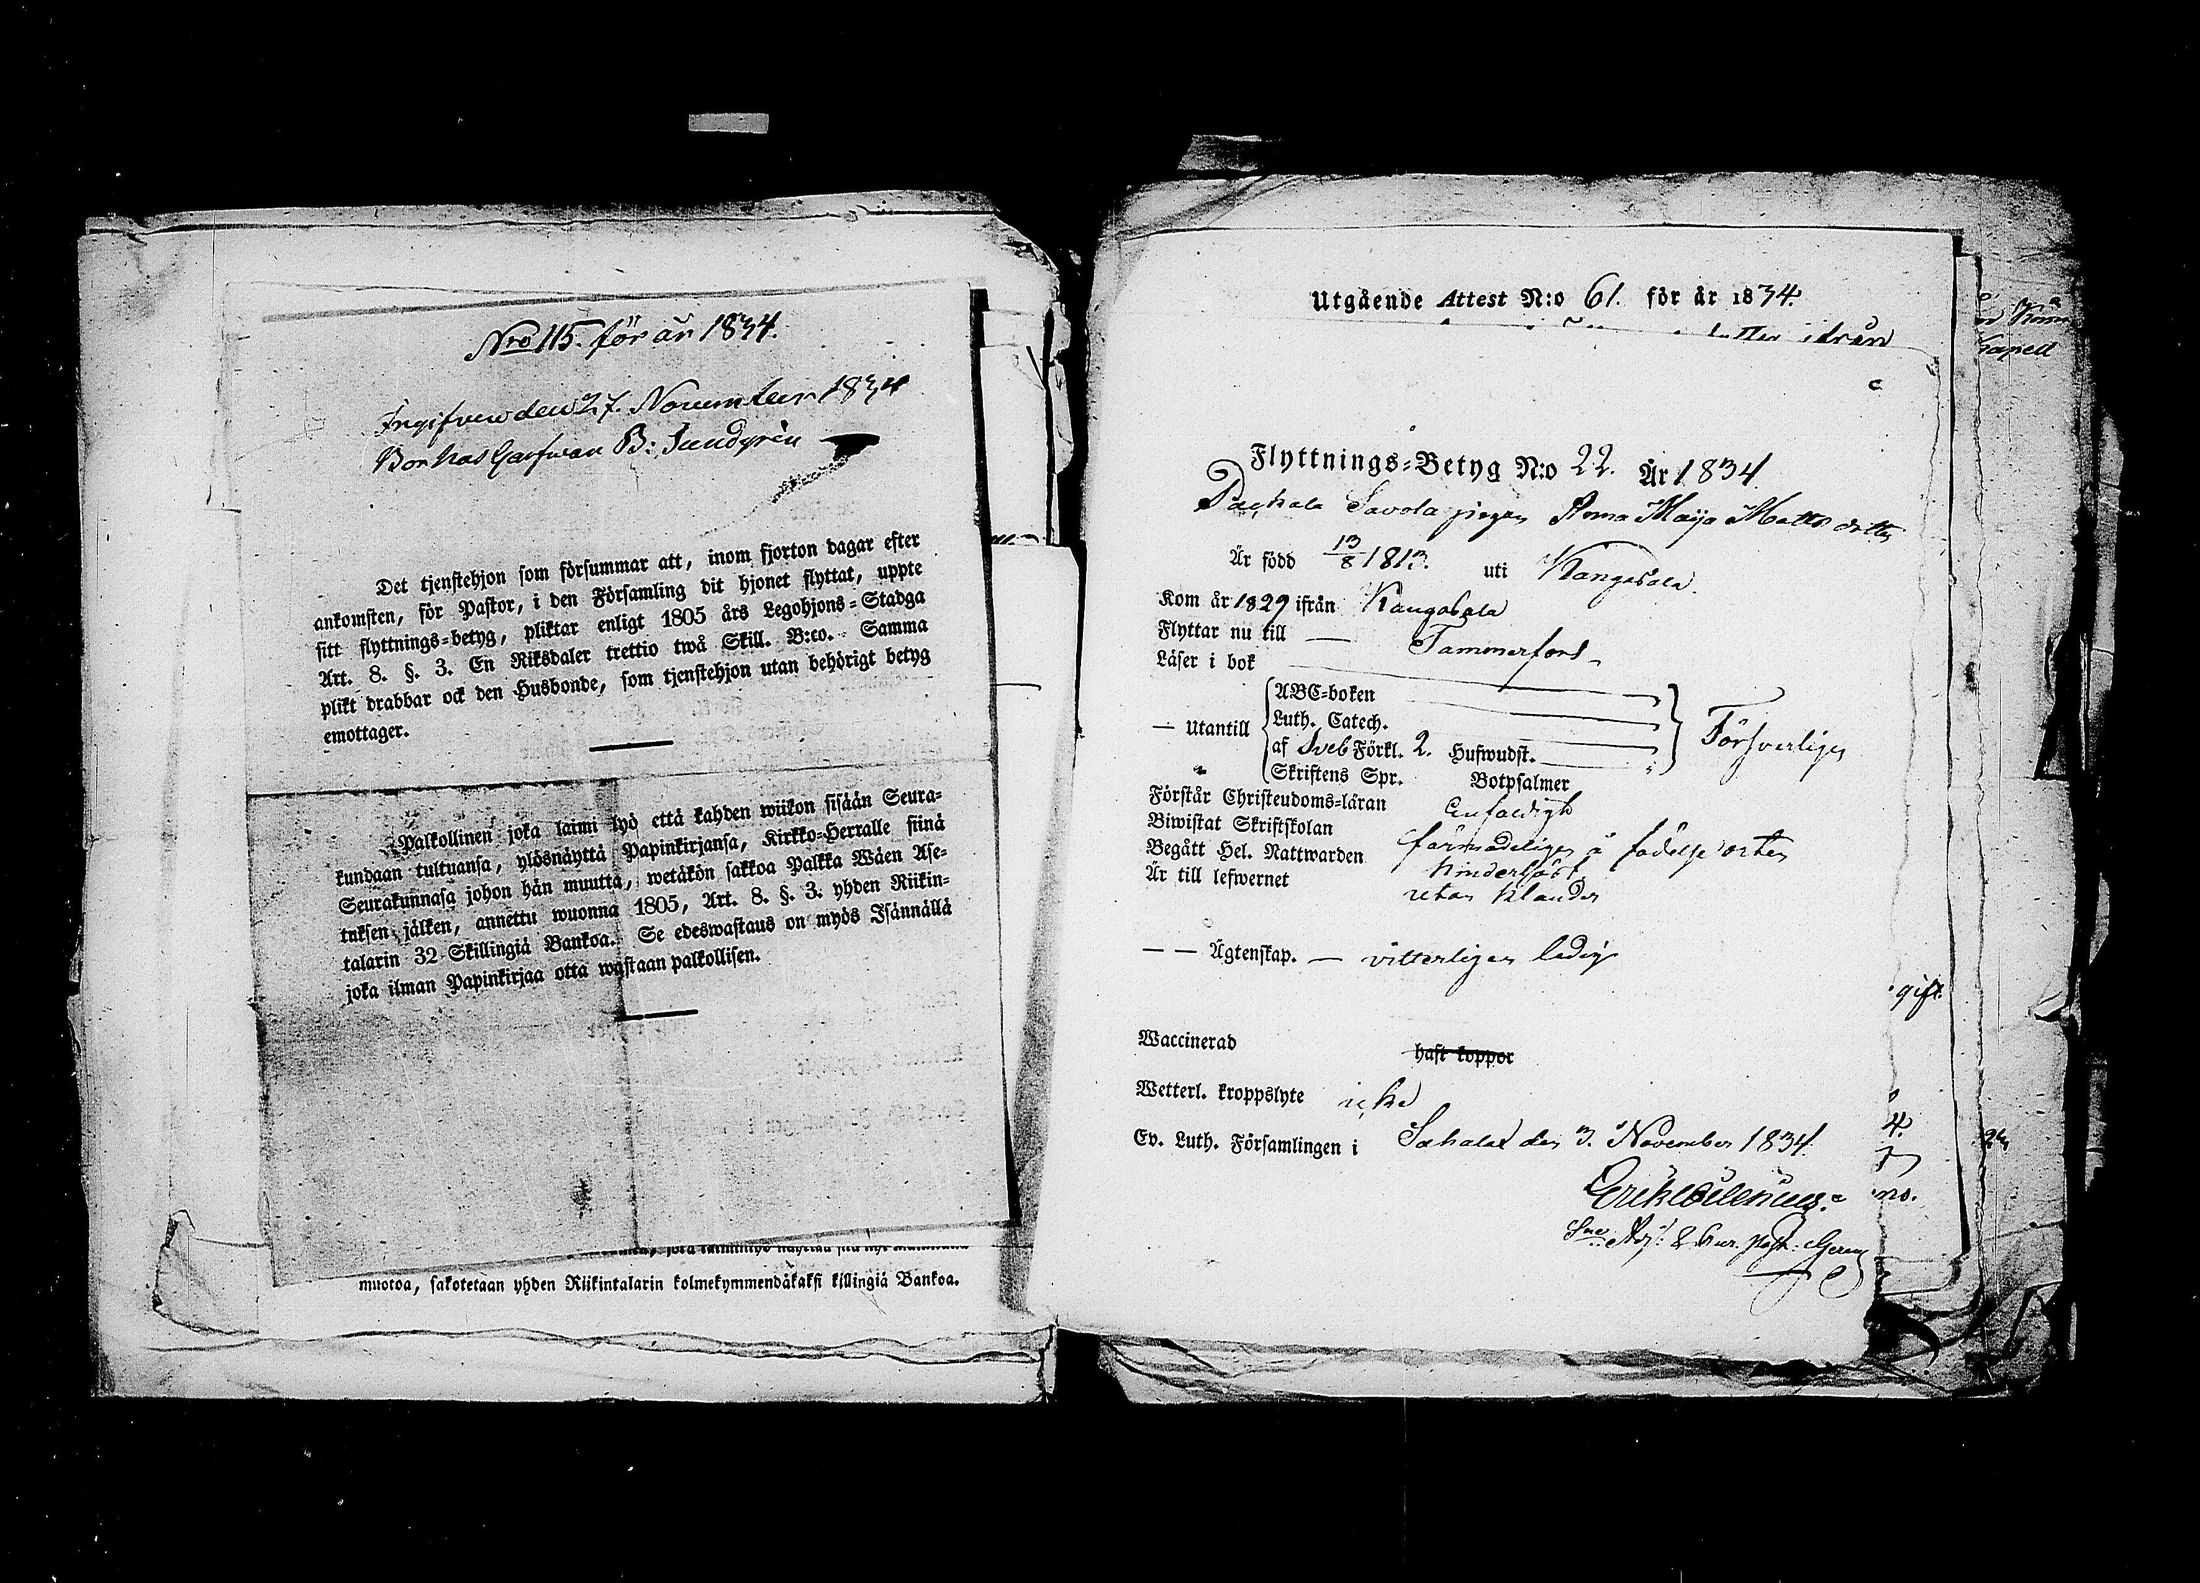 Nro 115. för år 1834.
Ingifven den 27. November 1834
Bor hos Garfwar B: Sundgrén
Det tjenstehjon som försummar att, inom fjorton dagar efter
ankomsten, för Pastor, i den Församling dit hjonet flyttat, uppte
sitt flyttnings=betyg, pliktar enligt 1805 års Legohjons=Stadga
Art. 8. §. 3. En Riksdaler trettio twå Skill. B:co. Samma
plikt drabbar ock den Husbonde, som tjenstehjon utan behörigt betyg
emottager.
Palkollinen joka laimi lyö että kahden wiikon sisään Seura-
kundaan tultuansa, ylösnäyttä Papinkirjansa, Kirkko=Herralle siinä
Seurakunnasa johon hän muutta, wetäkön sakkoa Palkka Wäen Ase-
tuksen jälken, annettu wuonna 1805, Art. 8. §. 3. yhden Riikin-
talarin 32 Skillingiä Bankoa. Se edeswastaus on myös Isännällä
joka ilman Papinkirjaa otta wastaan palkollisen.
muotoa, sakotetaan yhden Riikintalarin kolmekymmendäkaksi killingiä Bankoa.
Utgående Attest N:o 61. för år 1834.
ifrån
Flyttnings=Betyg N:o 22. År 1834
Savola pigan Anna Maija Matts dotter
Är född 13/8 1813. uti Kangasala.
Kom år 1829 ifrån Kangasala
Flyttar nu till — Tammerfors
Läser i bok
— Utantill
ABC=boken
Luth. Catech.
af Sveb Förkl. 2. Hufwudst.
Skriftens Spr. Botpsalmer
Försvarligen
Förstår Christendoms=läran enfaldigt
Biwistat Skriftskolan
Begått Hel. Nattwarden
Är till lefwernet utan klander
— — Ägtenskap. — vitterligen ledig
Waccinerad haft koppor
Wetterl. kroppslyte icke
Ev. Luth. Församlingen i Sahalax den 3. November 1834.
gift.
4.
no.
Kapell